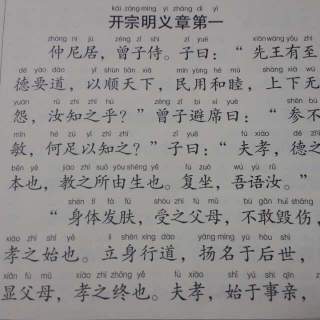 kāi zōng míng yì zhāng dì yī
开宗明义章第一
zhòng ní jū zēng zǐ shì zǐ yuē xiān wáng yǒu zhì
仲尼居，曾子侍。子曰：“先王有至
dé yào dào yǐ shùn tiān xià mín yòng hé mù shàng xià wú
德要道，以顺天下，民用和睦，上下无
yuàn rǔ zhī zhī hū zēng zǐ bì xí yuē
怨，汝知之乎？”曾子避席曰：“参不
mǐn hé zú yǐ zhī zhī zǐ yuē fú xiào dé zhī
敏，何足以知之？”子曰：“夫孝，德之
běn yě jiào zhī suǒ yóu shēng yě fù zuò wú yù rǔ
本也，教之所由生也。复坐，吾语汝。”
shēn tǐ fà fū shòu zhī fù mǔ bù gǎn huǐ shāng
“身体发肤，受之父母，不敢毁伤，
xiào zhī shǐ yě lì shēn xíng dào yáng míng yú hòu shì
孝之始也。立身行道，扬名于后世，
xiǎn fù mǔ xiào zhī zhōng yě fú xiào shǐ yú shì qīn
显父母，孝之终也。夫孝，始于事亲，